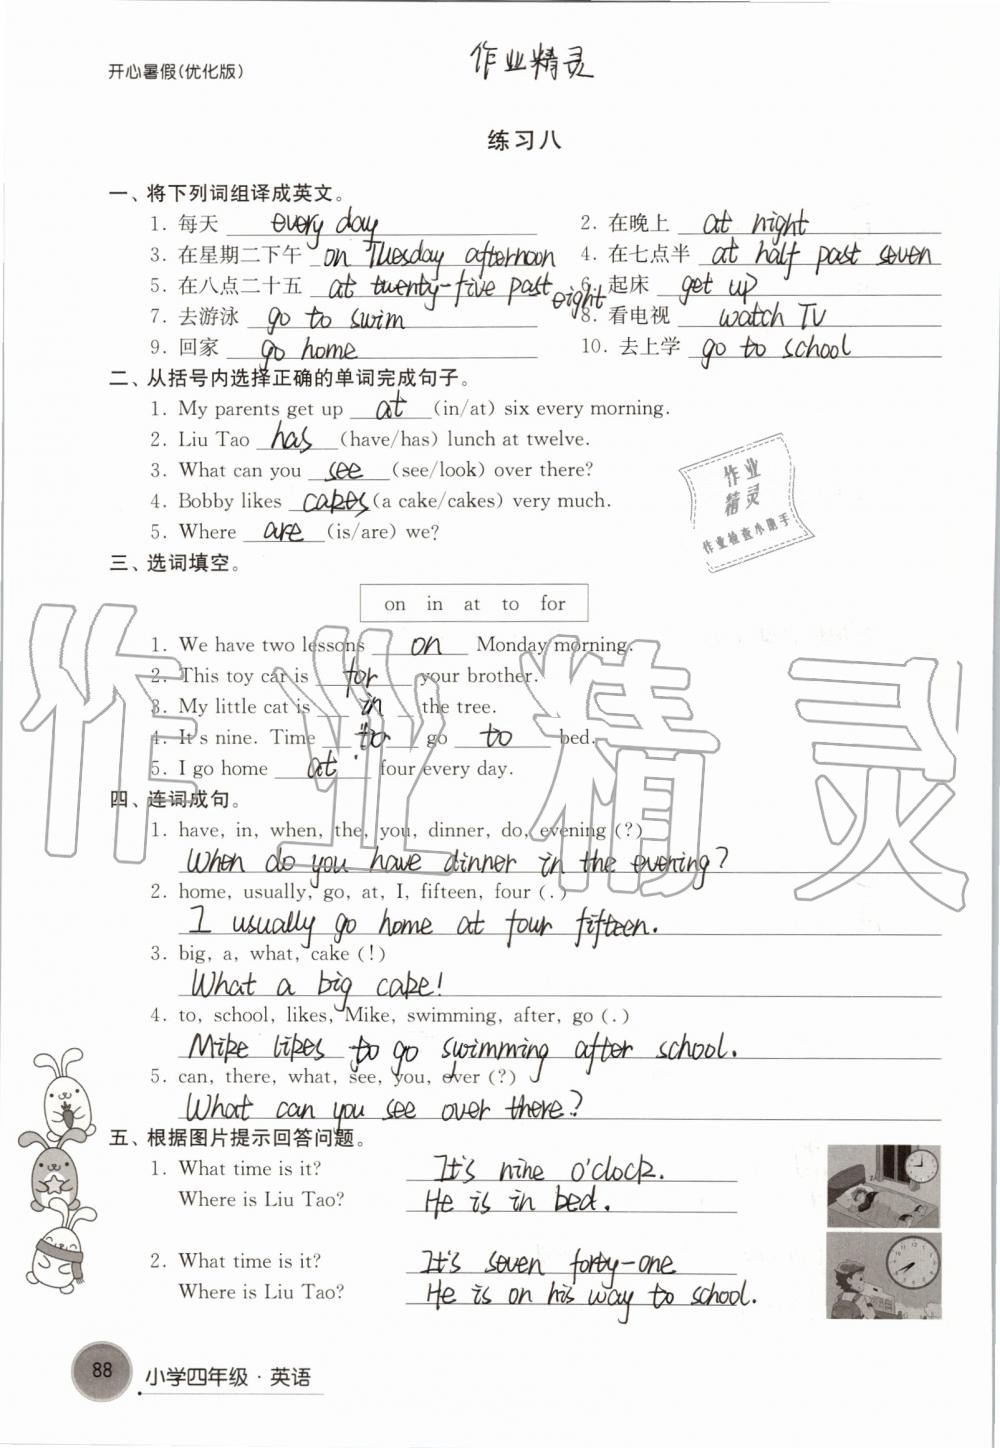 开心暑假(优化版)
作业精灵
练习八
一、将下列词组译成英文。
1. 每天 every day 2. 在晚上 at night
3. 在星期二下午 on Tuesday afternoon 4. 在七点半 at half past seven
5. 在八点二十五 at twenty-five past eight 6. 起床 get up
7. 去游泳 go to swim 8. 看电视 watch TV
9. 回家 go home 10. 去上学 go to school
二、从括号内选择正确的单词完成句子。
1. My parents get up at (in/at) six every morning.
2. Liu Tao has (have/has) lunch at twelve.
3. What can you see (see/look) over there?
4. Bobby likes cakes (a cake/cakes) very much.
5. Where are (is/are) we?
作业
精灵
作业检查小助手
三、选词填空。
on in at to for
1. We have two lessons on Monday morning.
2. This toy car is for your brother.
3. My little cat is in the tree.
4. It's nine. Time to go to bed.
5. I go home at four every day.
作业精灵
四、连词成句。
1. have, in, when, the, you, dinner, do, evening (?)
When do you have dinner in the evening?
2. home, usually, go, at, I, fifteen, four (.)
I usually go home at four fifteen.
3. big, a, what, cake (!)
What a big cake!
4. to, school, likes, Mike, swimming, after, go (.)
Mike likes to go swimming after school.
5. can, there, what, see, you, over (?)
What can you see over there?
五、根据图片提示回答问题。
1. What time is it? It's nine o'clock.
Where is Liu Tao? He is in bed.
2. What time is it? It's seven forty-one
Where is Liu Tao? He is on his way to school.
88
小学四年级·英语